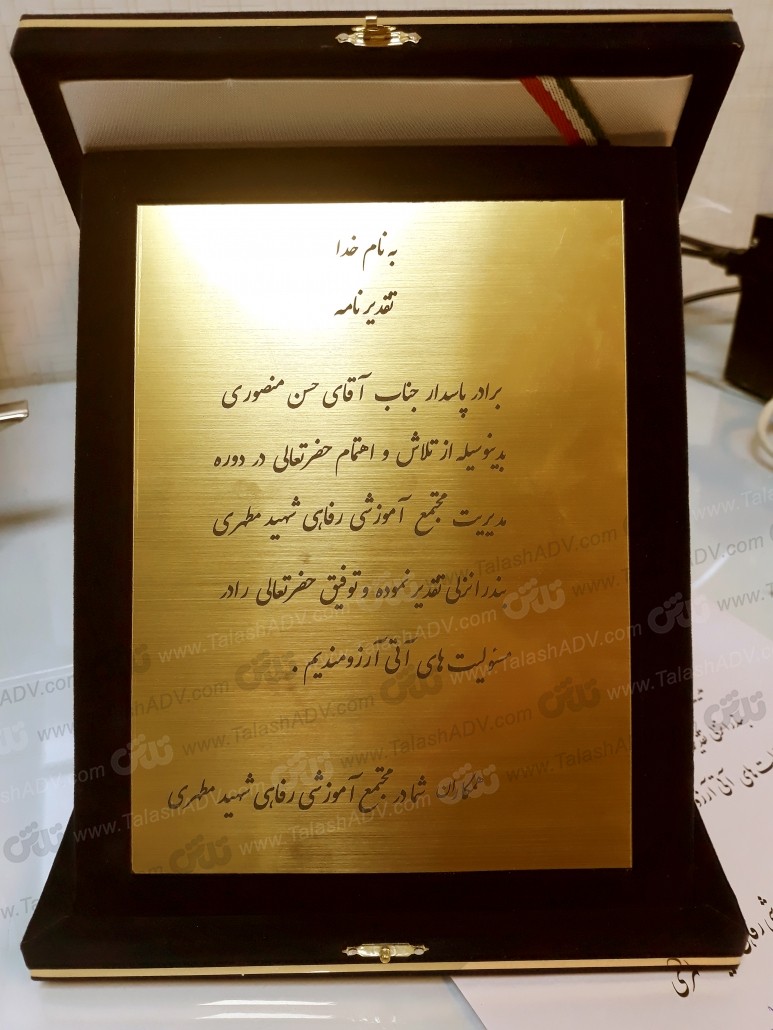 به نام خدا
تقدیرنامه
برادر پاسدار جناب آقای حسن منصوری
بدینوسیله از تلاش و اهتمام حضرتعالی در دوره
مدیریت مجتمع آموزشی رفاهی شهید مطهری
بندر انزلی تقدیر نموده و توفیق حضرتعالی را در
مسئولیت های آتی آرزومندیم .
همکاران شما در مجتمع آموزشی رفاهی شهید مطهری
تلاش www.TalashADV.com